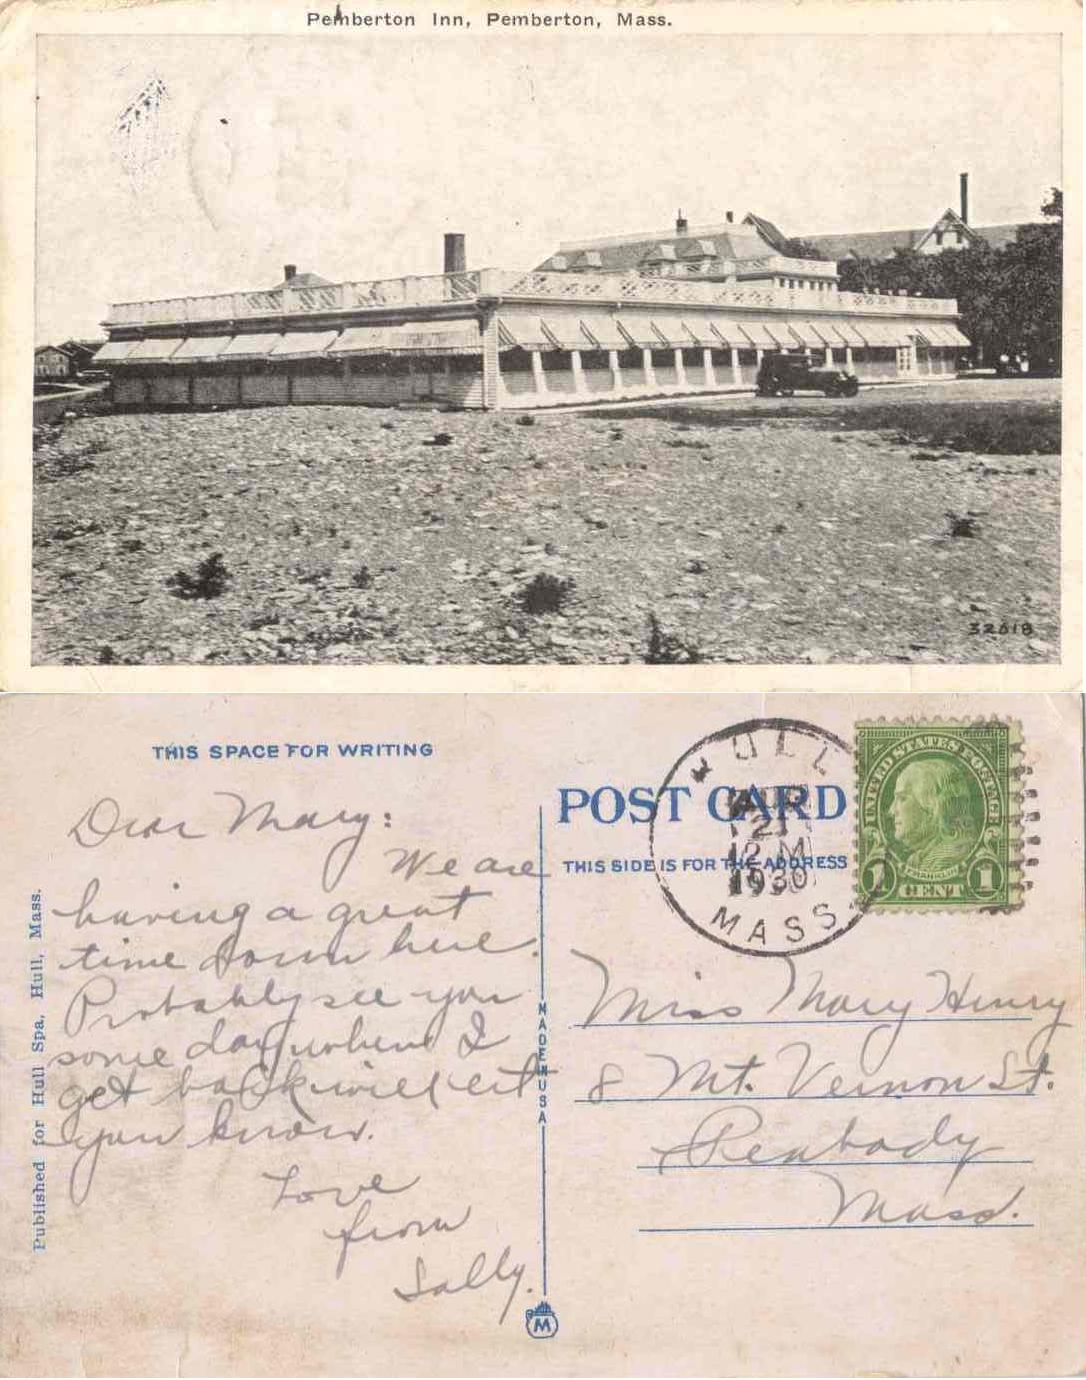 Pemberton Inn, Pemberton, Mass.
32618
THIS SPACE FOR WRITING
Dear Mary:
We are
having a great
time down here.
Probably see you
some day when I
get back will let
you know.
Love
from
Sally.
Published for Hull Spa, Hull, Mass.
MADE IN USA
M
POST CARD
THIS SIDE IS FOR THE ADDRESS
HULL
AUG
21
12 M
1930
MASS
UNITED STATES POSTAGE
FRANKLIN
1 CENT 1
Miss Mary Henry
8 Mt. Vernon St.
Peabody
Mass.